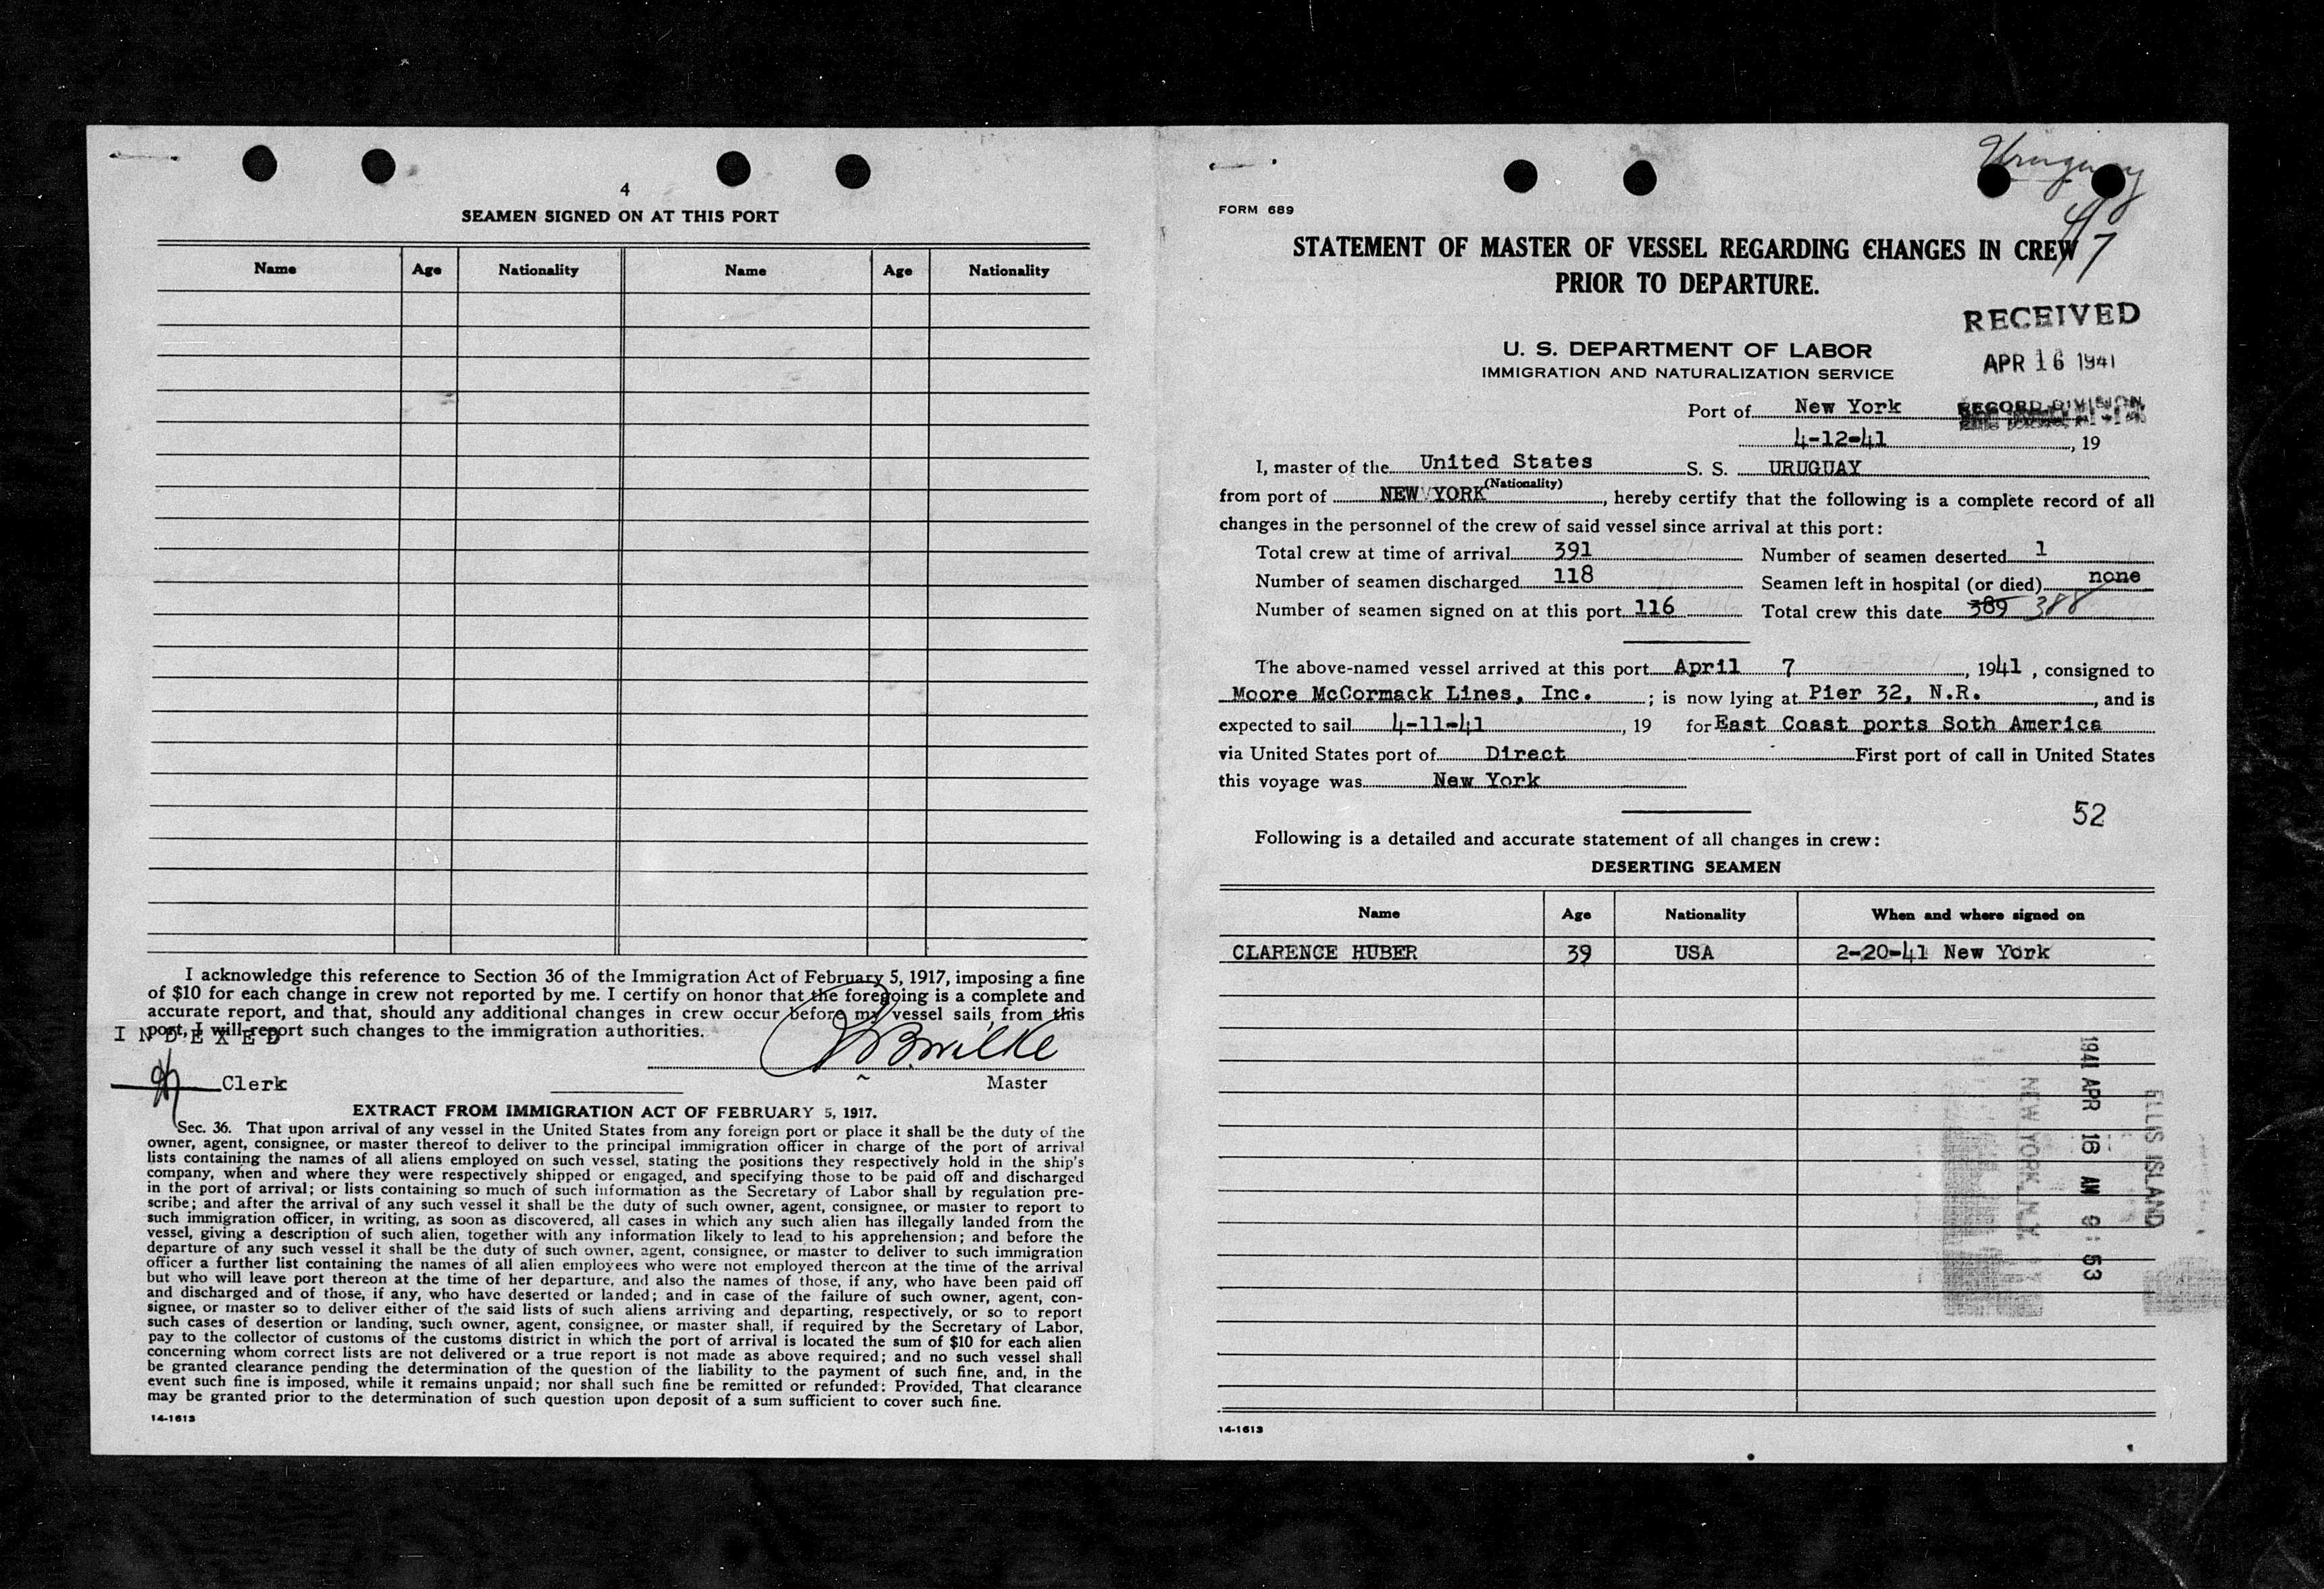 4
SEAMEN SIGNED ON AT THIS PORT
Name Age Nationality Name Age Nationality
I acknowledge this reference to Section 36 of the Immigration Act of February 5, 1917, imposing a fine
of $10 for each change in crew not reported by me. I certify on honor that the foregoing is a complete and
accurate report, and that, should any additional changes in crew occur before my vessel sails from this
port, I will report such changes to the immigration authorities.
INDEXED
Clerk
Master
EXTRACT FROM IMMIGRATION ACT OF FEBRUARY 5, 1917.
Sec. 36. That upon arrival of any vessel in the United States from any foreign port or place it shall be the duty of the
owner, agent, consignee, or master thereof to deliver to the principal immigration officer in charge of the port of arrival
lists containing the names of all aliens employed on such vessel, stating the positions they respectively hold in the ship's
company, when and where they were respectively shipped or engaged, and specifying those to be paid off and discharged
in the port of arrival; or lists containing so much of such information as the Secretary of Labor shall by regulation pre-
scribe; and after the arrival of any such vessel it shall be the duty of such owner, agent, consignee, or master to report to
such immigration officer, in writing, as soon as discovered, all cases in which any such alien has illegally landed from the
vessel, giving a description of such alien, together with any information likely to lead to his apprehension; and before the
departure of any such vessel it shall be the duty of such owner, agent, consignee, or master to deliver to such immigration
officer a further list containing the names of all alien employees who were not employed thereon at the time of the arrival
but who will leave port thereon at the time of her departure, and also the names of those, if any, who have been paid off
and discharged and of those, if any, who have deserted or landed; and in case of the failure of such owner, agent, con-
signee, or master so to deliver either of the said lists of such aliens arriving and departing, respectively, or so to report
such cases of desertion or landing, such owner, agent, consignee, or master shall, if required by the Secretary of Labor,
pay to the collector of customs of the customs district in which the port of arrival is located the sum of $10 for each alien
concerning whom correct lists are not delivered or a true report is not made as above required; and no such vessel shall
be granted clearance pending the determination of the question of the liability to the payment of such fine, and, in the
event such fine is imposed, while it remains unpaid; nor shall such fine be remitted or refunded: Provided, That clearance
may be granted prior to the determination of such question upon deposit of a sum sufficient to cover such fine.
14-1613
Uruguay
4/7
FORM 689
STATEMENT OF MASTER OF VESSEL REGARDING CHANGES IN CREW
PRIOR TO DEPARTURE.
RECEIVED
APR 16 1941
RECORD DIVISION
U. S. DEPARTMENT OF LABOR
IMMIGRATION AND NATURALIZATION SERVICE
Port of New York
4-12-41, 19
I, master of the United States S. S. URUGUAY
(Nationality)
from port of NEW YORK, hereby certify that the following is a complete record of all
changes in the personnel of the crew of said vessel since arrival at this port:
Total crew at time of arrival 391 Number of seamen deserted 1
Number of seamen discharged 118 Seamen left in hospital (or died) none
Number of seamen signed on at this port 116 Total crew this date 389 388
The above-named vessel arrived at this port April 7, 1941, consigned to
Moore McCormack Lines, Inc.; is now lying at Pier 32, N.R., and is
expected to sail 4-11-41, 19 for East Coast ports Soth America
via United States port of Direct First port of call in United States
this voyage was New York
52
Following is a detailed and accurate statement of all changes in crew:
DESERTING SEAMEN
Name Age Nationality When and where signed on
CLARENCE HUBER 39 USA 2-20-41 New York
1941 APR 18 AM 9:53
ELLIS ISLAND
NEW YORK, N.Y.
14-1613